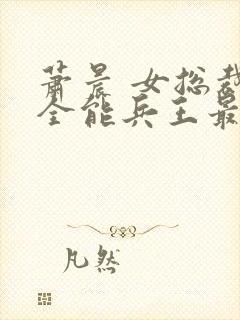 萧晨 女总裁
全能兵王最
凡然